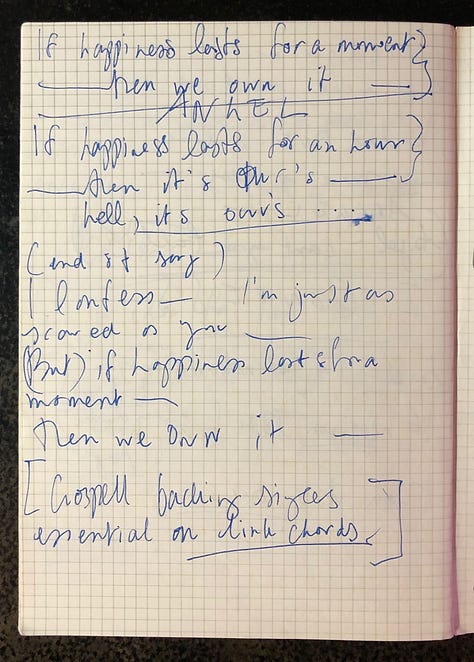 If happiness lasts for a moment }
— then we own it — }
ANHEL
If happiness lasts for an hour }
— then it's Our's — }
hell, its our's ....
(end of song)
I confess — I'm just as
scared as you —
(But) if happiness lasts for a
moment —
then we OWN it —
[Gospell backing singers
essential on link chords.]